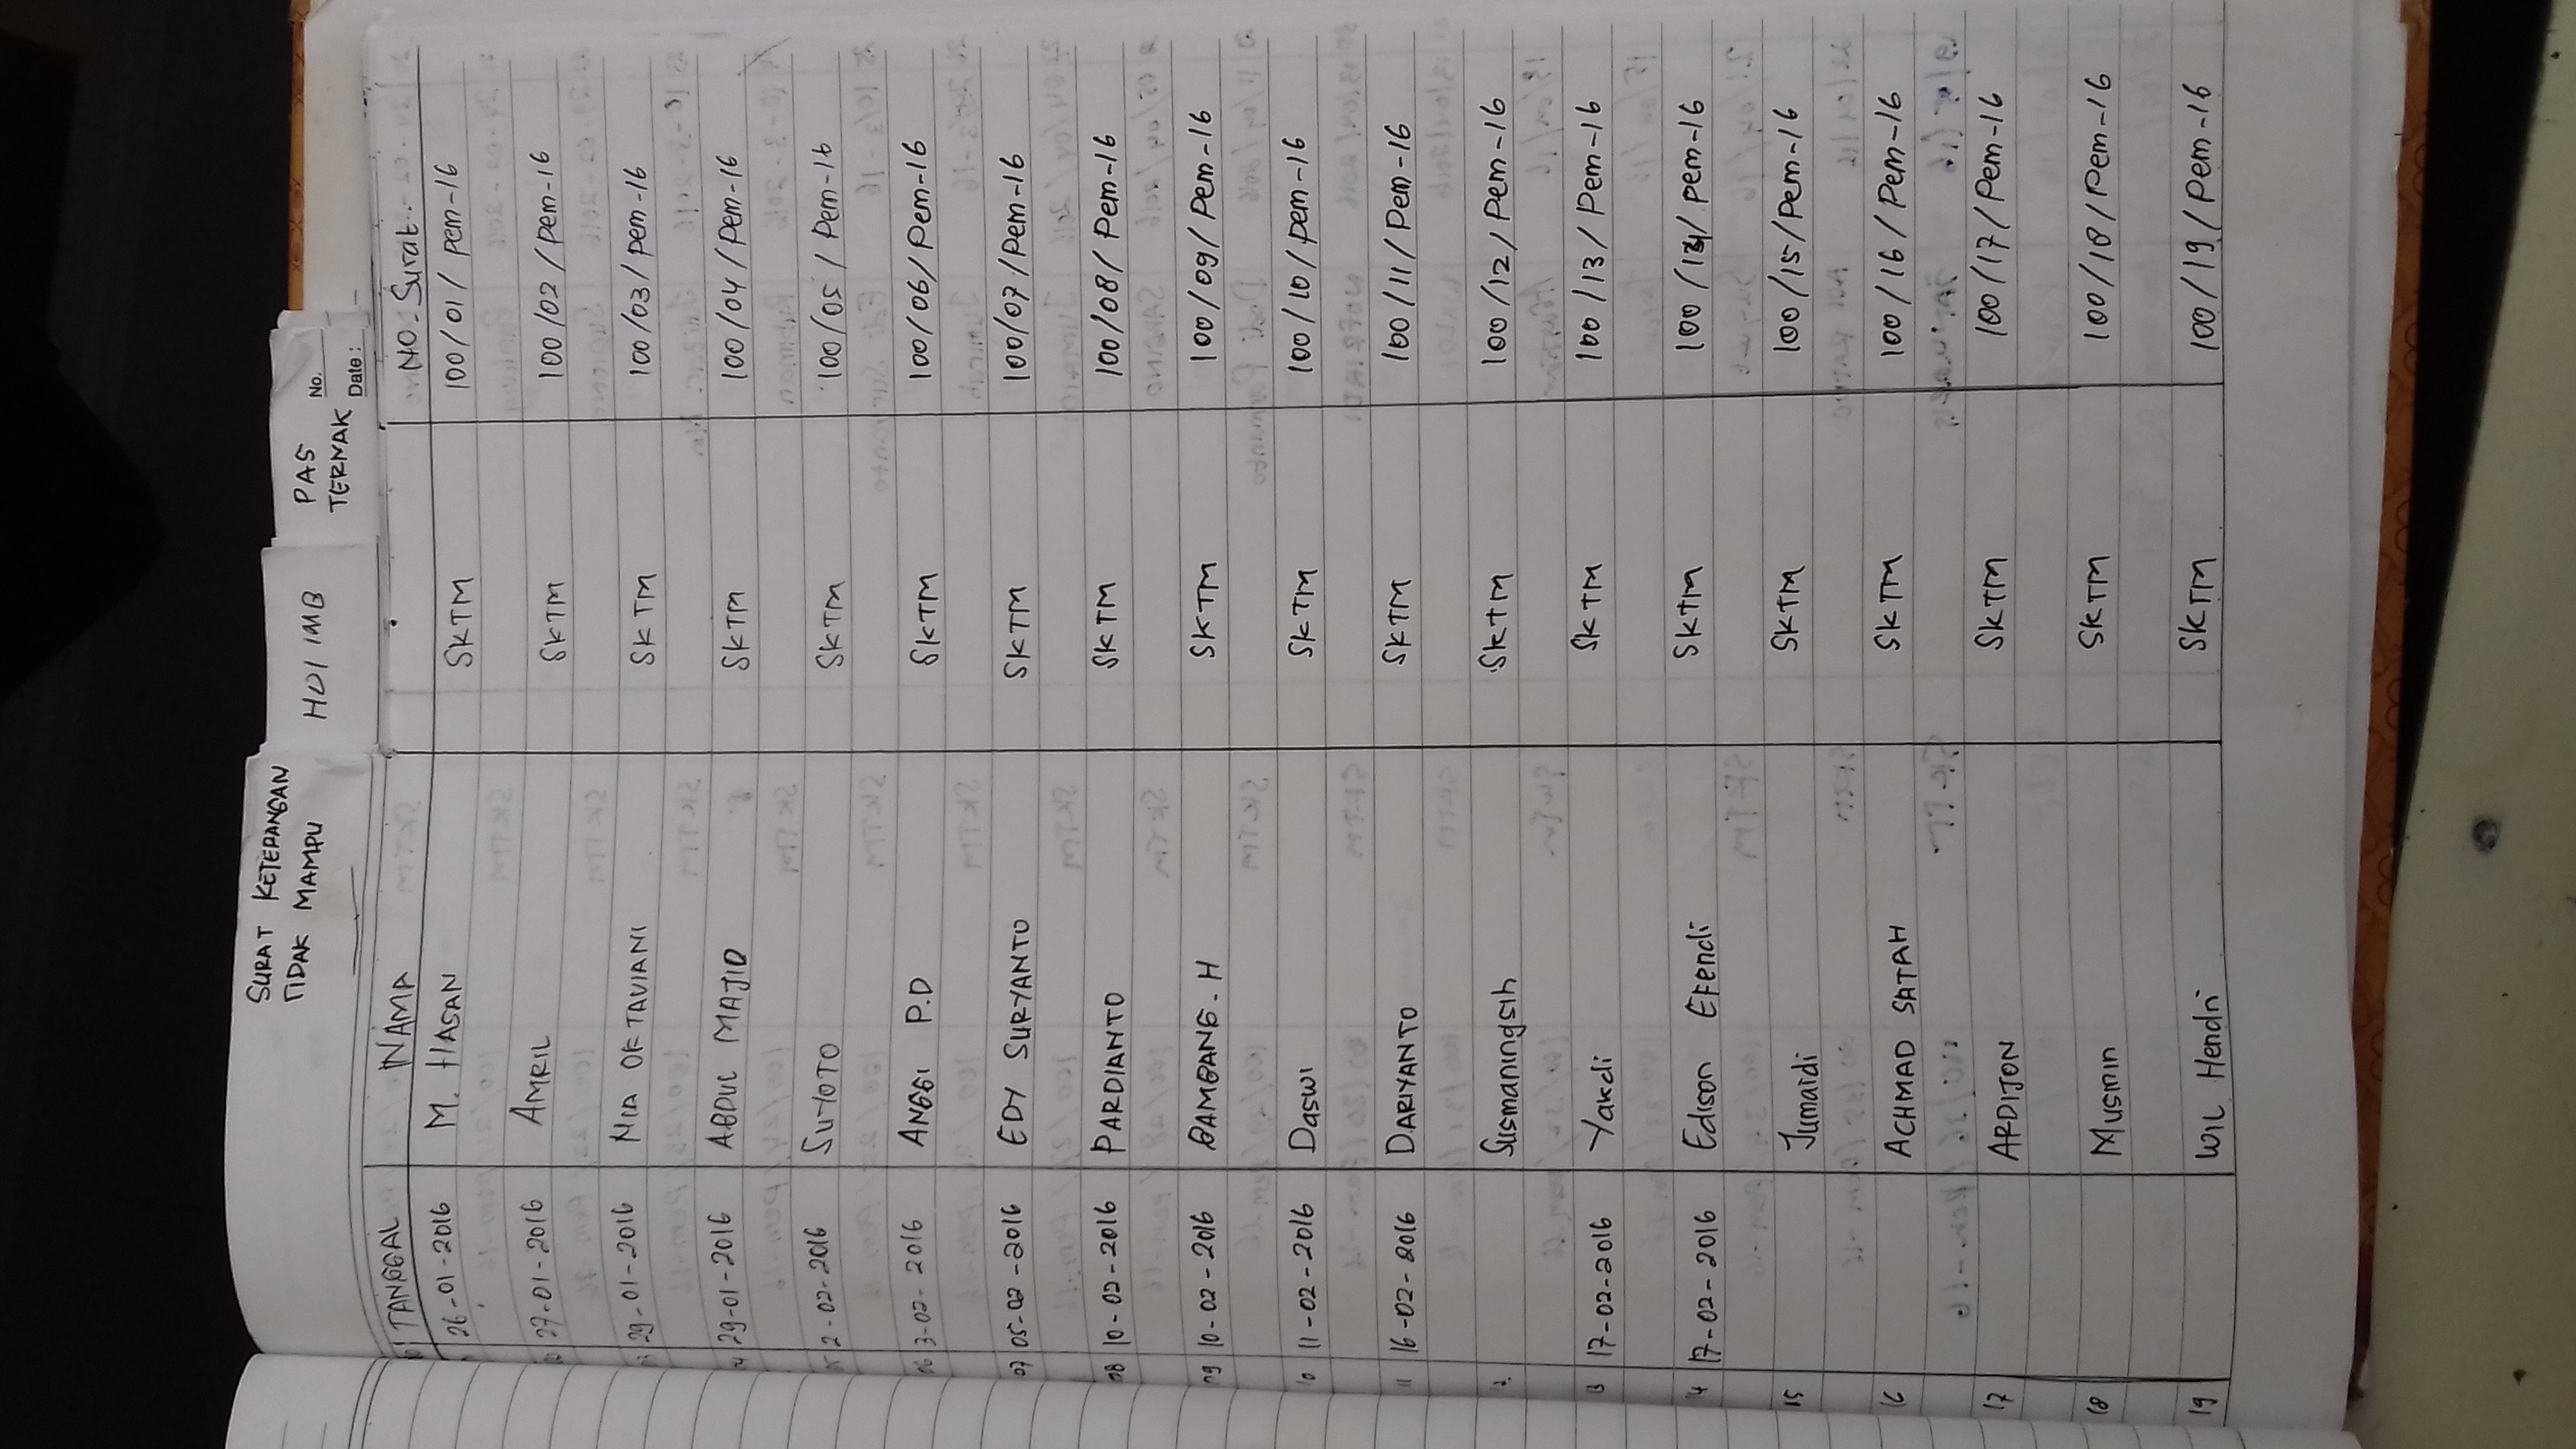 SURAT KETERANGAN
TIDAK MAMPU
HO/IMB
PAS
TERMAK
No.
Date:
TANGGAL NAMA NO. Surat
26-01-2016 M. HASAN SKTM 100/01/pem-16
27-01-2016 AMRIL SKTM 100/02/pem-16
29-01-2016 NIA OKTAVIANI SKTM 100/03/pem-16
29-01-2016 ABDUL MAJID SKTM 100/04/pem-16
2-02-2016 SUYOTO SKTM 100/05/Pem-16
06 3-02-2016 ANGGI P.D SKTM 100/06/Pem-16
07 05-02-2016 EDY SURYANTO SKTM 100/07/Pem-16
08 10-02-2016 PARDIANTO SKTM 100/08/Pem-16
09 10-02-2016 BAMBANG. H SKTM 100/09/Pem-16
10 11-02-2016 Daswi SKTM 100/10/pem-16
11 16-02-2016 DARIYANTO SKTM 100/11/Pem-16
12. Susmaningsih SKTM 100/12/Pem-16
13 17-02-2016 Yakdi SKTM 100/13/Pem-16
14 17-02-2016 Edison EFendi SKTM 100/14/pem-16
15 Jumaidi SKTM 100/15/Pem-16
16 ACHMAD SATAH SKTM 100/16/Pem-16
17 ARDIJON SKTM 100/17/Pem-16
18 Musmin SKTM 100/18/Pem-16
19 WIL Hendri SKTM 100/19/Pem-16